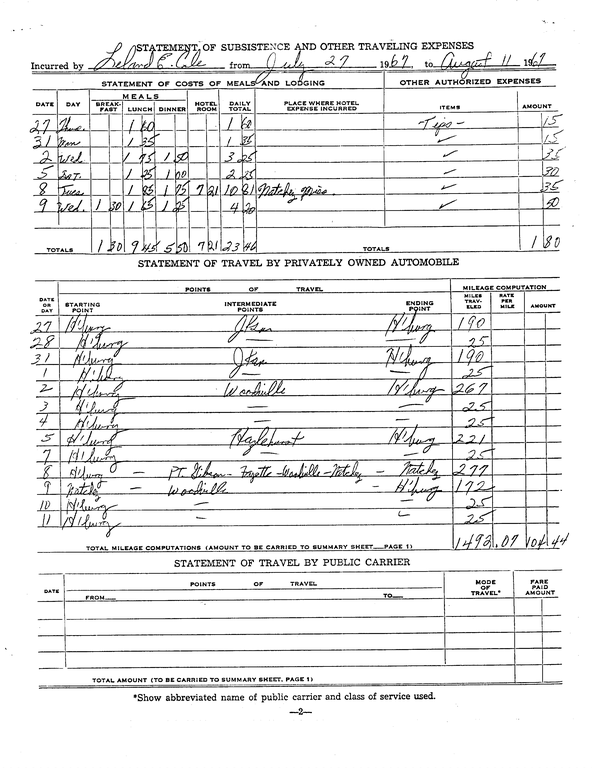 STATEMENT OF SUBSISTENCE AND OTHER TRAVELING EXPENSES
Incurred by Leland E. Cole from July 27 1967, to August 11 1967
STATEMENT OF COSTS OF MEALS AND LODGING OTHER AUTHORIZED EXPENSES
MEALS
DATE DAY BREAK-FAST LUNCH DINNER HOTEL ROOM DAILY TOTAL PLACE WHERE HOTEL EXPENSE INCURRED ITEMS AMOUNT
27 Thus. 1 60 1 60 Tips - 15
31 Mon 1 35 1 35 ✓ 15
2 Wed 1 75 1 50 3 25 ✓ 35
5 Sat. 1 25 1 00 2 25 ✓ 30
8 Tues 1 85 1 75 7 21 10 81 Natchez Miss ✓ 35
9 Wed. 1 30 1 65 1 25 4 20 ✓ 50
TOTALS 1 30 9 45 5 50 7 21 23 46 TOTALS 1 80
STATEMENT OF TRAVEL BY PRIVATELY OWNED AUTOMOBILE
POINTS OF TRAVEL MILEAGE COMPUTATION
DATE OR DAY STARTING POINT INTERMEDIATE POINTS ENDING POINT MILES TRAV-ELED RATE PER MILE AMOUNT
27 H'burg Jksn H'burg 190
28 H'burg — — 25
31 H'burg Jksn H'burg 190
1 H'burg — — 25
2 H'burg Woodville H'burg 267
3 H'burg — — 25
4 H'burg — — 25
5 H'burg Hazlehurst H'burg 221
7 H'burg — — 25
8 H'burg — Pt. Gibson - Fayette - Woodville - Natchez — Natchez 277
9 Natchez — Woodville — H'burg 172
10 H'burg — — 25
11 H'burg — 25
TOTAL MILEAGE COMPUTATIONS (AMOUNT TO BE CARRIED TO SUMMARY SHEET—PAGE 1) 1492 .07 104 44
STATEMENT OF TRAVEL BY PUBLIC CARRIER
DATE POINTS OF TRAVEL MODE OF TRAVEL* FARE PAID AMOUNT
FROM— TO—
TOTAL AMOUNT (TO BE CARRIED TO SUMMARY SHEET, PAGE 1)
*Show abbreviated name of public carrier and class of service used.
—2—